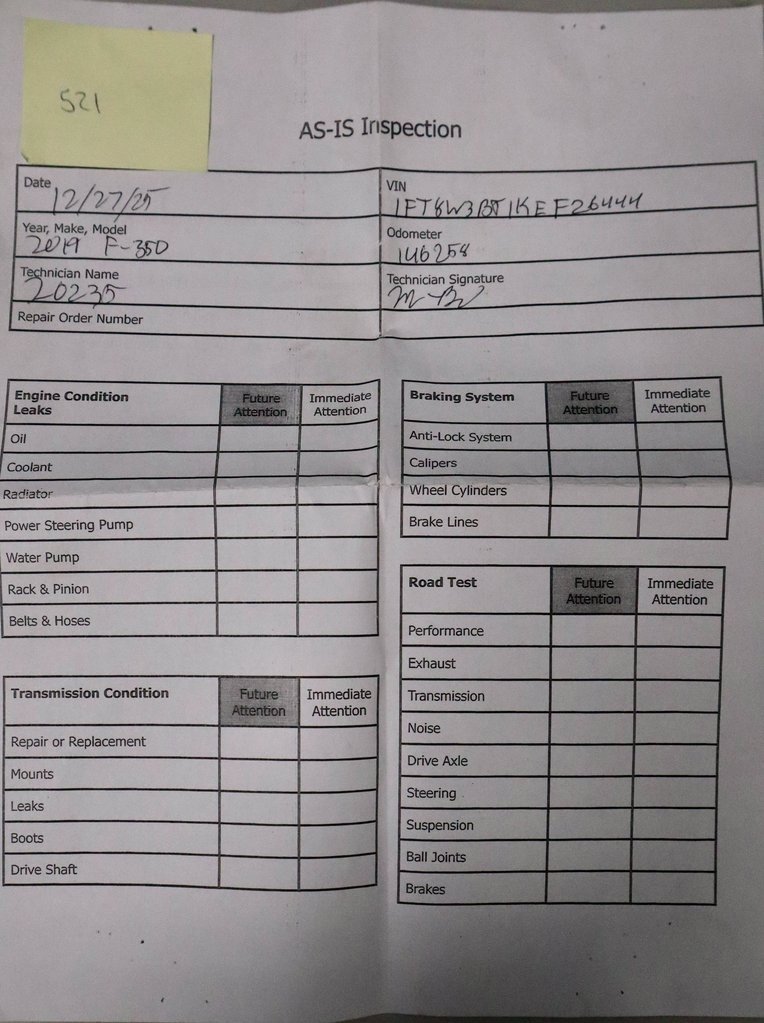 521
AS-IS Inspection
Date 12/27/25
VIN 1FT8W3BT1KEF26444
Year, Make, Model 2019 F-350
Odometer 146258
Technician Name 20235
Technician Signature
Repair Order Number
Engine Condition Leaks Future Attention Immediate Attention
Oil
Coolant
Radiator
Power Steering Pump
Water Pump
Rack & Pinion
Belts & Hoses
Transmission Condition Future Attention Immediate Attention
Repair or Replacement
Mounts
Leaks
Boots
Drive Shaft
Braking System Future Attention Immediate Attention
Anti-Lock System
Calipers
Wheel Cylinders
Brake Lines
Road Test Future Attention Immediate Attention
Performance
Exhaust
Transmission
Noise
Drive Axle
Steering
Suspension
Ball Joints
Brakes